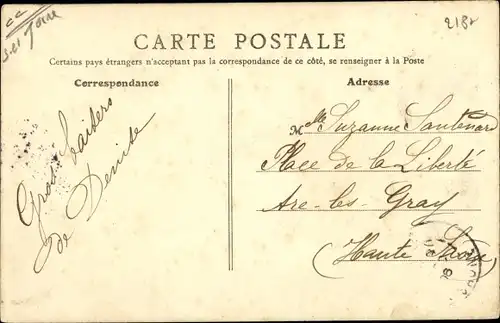 218
CARTE POSTALE
Certains pays étrangers n'acceptant pas la correspondance de ce côté, se renseigner à la Poste
Correspondance
Adresse
Gros baisers
de Denise
Mlle Suzanne
Place de la Liberté
Arc-les-Gray
(Haute Saône)